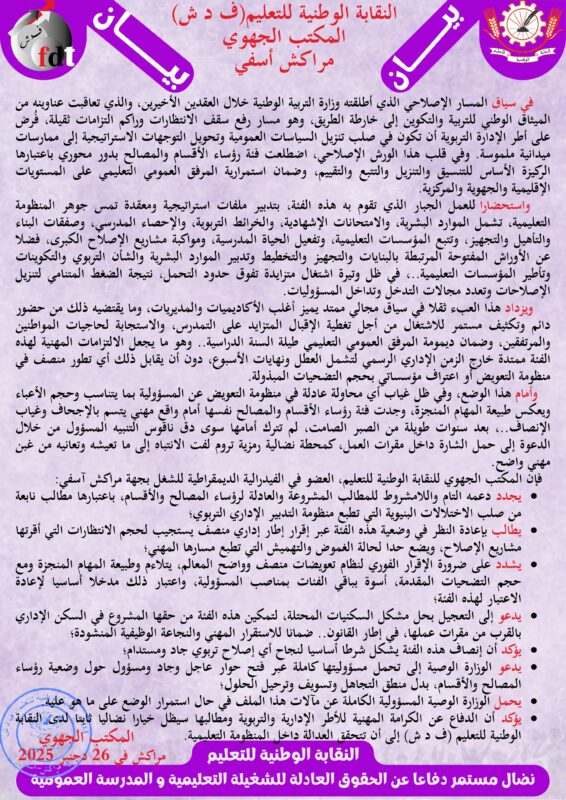 النقابة الوطنية للتعليم(ف د ش)
المكتب الجهوي
مراكش أسفي
بيـــان
بيـــان
fdt
في سياق المسار الإصلاحي الذي أطلقته وزارة التربية الوطنية خلال العقدين الأخيرين، والذي تعاقبت عناوينه من
الميثاق الوطني للتربية والتكوين إلى خارطة الطريق، وهو مسار رفع سقف الانتظارات وراكم التزامات ثقيلة، فُرض
على أطر الإدارة التربوية أن تكون في صلب تنزيل السياسات العمومية وتحويل التوجهات الاستراتيجية إلى ممارسات
ميدانية ملموسة. وفي قلب هذا الورش الإصلاحي، اضطلعت فئة رؤساء الأقسام والمصالح بدور محوري باعتبارها
الركيزة الأساس للتنسيق والتنزيل والتتبع والتقييم، وضمان استمرارية المرفق العمومي التعليمي على المستويات
الإقليمية والجهوية والمركزية.
واستحضارا للعمل الجبار الذي تقوم به هذه الفئة، بتدبير ملفات استراتيجية ومعقدة تمس جوهر المنظومة
التعليمية، تشمل الموارد البشرية، والامتحانات الإشهادية، والخرائط التربوية، والإحصاء المدرسي، وصفقات البناء
والتأهيل والتجهيز، وتتبع المؤسسات التعليمية، وتفعيل الحياة المدرسية، ومواكبة مشاريع الإصلاح الكبرى، فضلا
عن الأوراش المفتوحة المرتبطة بالبنايات والتجهيز والتخطيط وتدبير الموارد البشرية والشأن التربوي والتكوينات
وتأطير المؤسسات التعليمية..، في ظل وتيرة اشتغال متزايدة تفوق حدود التحمل، نتيجة الضغط المتنامي لتنزيل
الإصلاحات وتعدد مجالات التدخل وتداخل المسؤوليات.
ويزداد هذا العبء ثقلا في سياق مجالي ممتد يميز أغلب الأكاديميات والمديريات، وما يقتضيه ذلك من حضور
دائم وتكثيف مستمر للاشتغال من أجل تغطية الإقبال المتزايد على التمدرس، والاستجابة لحاجيات المواطنين
والمرتفقين، وضمان ديمومة المرفق العمومي التعليمي طيلة السنة الدراسية.. وهو ما يجعل الالتزامات المهنية لهذه
الفئة ممتدة خارج الزمن الإداري الرسمي لتشمل العطل ونهايات الأسبوع، دون أن يقابل ذلك أي تطور منصف في
منظومة التعويض أو اعتراف مؤسساتي بحجم التضحيات المبذولة.
وأمام هذا الوضع، وفي ظل غياب أي محاولة عادلة في منظومة التعويض عن المسؤولية بما يتناسب وحجم الأعباء
ويعكس طبيعة المهام المنجزة، وجدت فئة رؤساء الأقسام والمصالح نفسها أمام واقع مهني يتسم بالإجحاف وغياب
الإنصاف...، بعد سنوات طويلة من الصبر الصامت، لم تترك أمامها سوى دق ناقوس التنبيه المسؤول من خلال
الدعوة إلى حمل الشارة داخل مقرات العمل، كمحطة نضالية رمزية تروم لفت الانتباه إلى ما تعيشه وتعانيه من غبن
مهني واضح.
فإن المكتب الجهوي للنقابة الوطنية للتعليم، العضو في الفيدرالية الديمقراطية للشغل بجهة مراكش آسفي:
• يجدد دعمه التام واللامشروط للمطالب المشروعة والعادلة لرؤساء المصالح والأقسام، باعتبارها مطالب نابعة
من صلب الاختلالات البنيوية التي تطبع منظومة التدبير الإداري التربوي؛
• يطالب بإعادة النظر في وضعية هذه الفئة عبر إقرار إطار إداري منصف يستجيب لحجم الانتظارات التي أقرتها
مشاريع الإصلاح، ويضع حدا لحالة الغموض والتهميش التي تطبع مسارها المهني؛
• يشدد على ضرورة الإقرار الفوري لنظام تعويضات منصف وواضح المعالم، يتلاءم وطبيعة المهام المنجزة ومع
حجم التضحيات المقدمة، أسوة بباقي الفئات بمناصب المسؤولية، واعتبار ذلك مدخلا أساسيا لإعادة
الاعتبار لهذه الفئة؛
• يدعو إلى التعجيل بحل مشكل السكنيات المحتلة، لتمكين هذه الفئة من حقها المشروع في السكن الإداري
بالقرب من مقرات عملها، في إطار القانون.. ضمانا للاستقرار المهني والنجاعة الوظيفية المنشودة؛
• يؤكد أن إنصاف هذه الفئة يشكل شرطا أساسيا لنجاح أي إصلاح تربوي جاد ومستدام؛
• يدعو الوزارة الوصية إلى تحمل مسؤوليتها كاملة عبر فتح حوار عاجل وجاد ومسؤول حول وضعية رؤساء
المصالح والأقسام، بدل منطق التجاهل وتسويف وترحيل الحلول؛
• يحمل الوزارة الوصية المسؤولية الكاملة عن مآلات هذا الملف في حال استمرار الوضع على ما هو عليه
• يؤكد أن الدفاع عن الكرامة المهنية للأطر الإدارية والتربوية ومطالبها سيظل خيارا نضاليا ثابتا لدى النقابة
الوطنية للتعليم (ف د ش) إلى أن تتحقق العدالة داخل المنظومة التعليمية.
المكتب الجهوي
مراكش في 26 دجنبر 2025
النقابة الوطنية للتعليم
نضال مستمر دفاعا عن الحقوق العادلة للشغيلة التعليمية و المدرسة العمومية